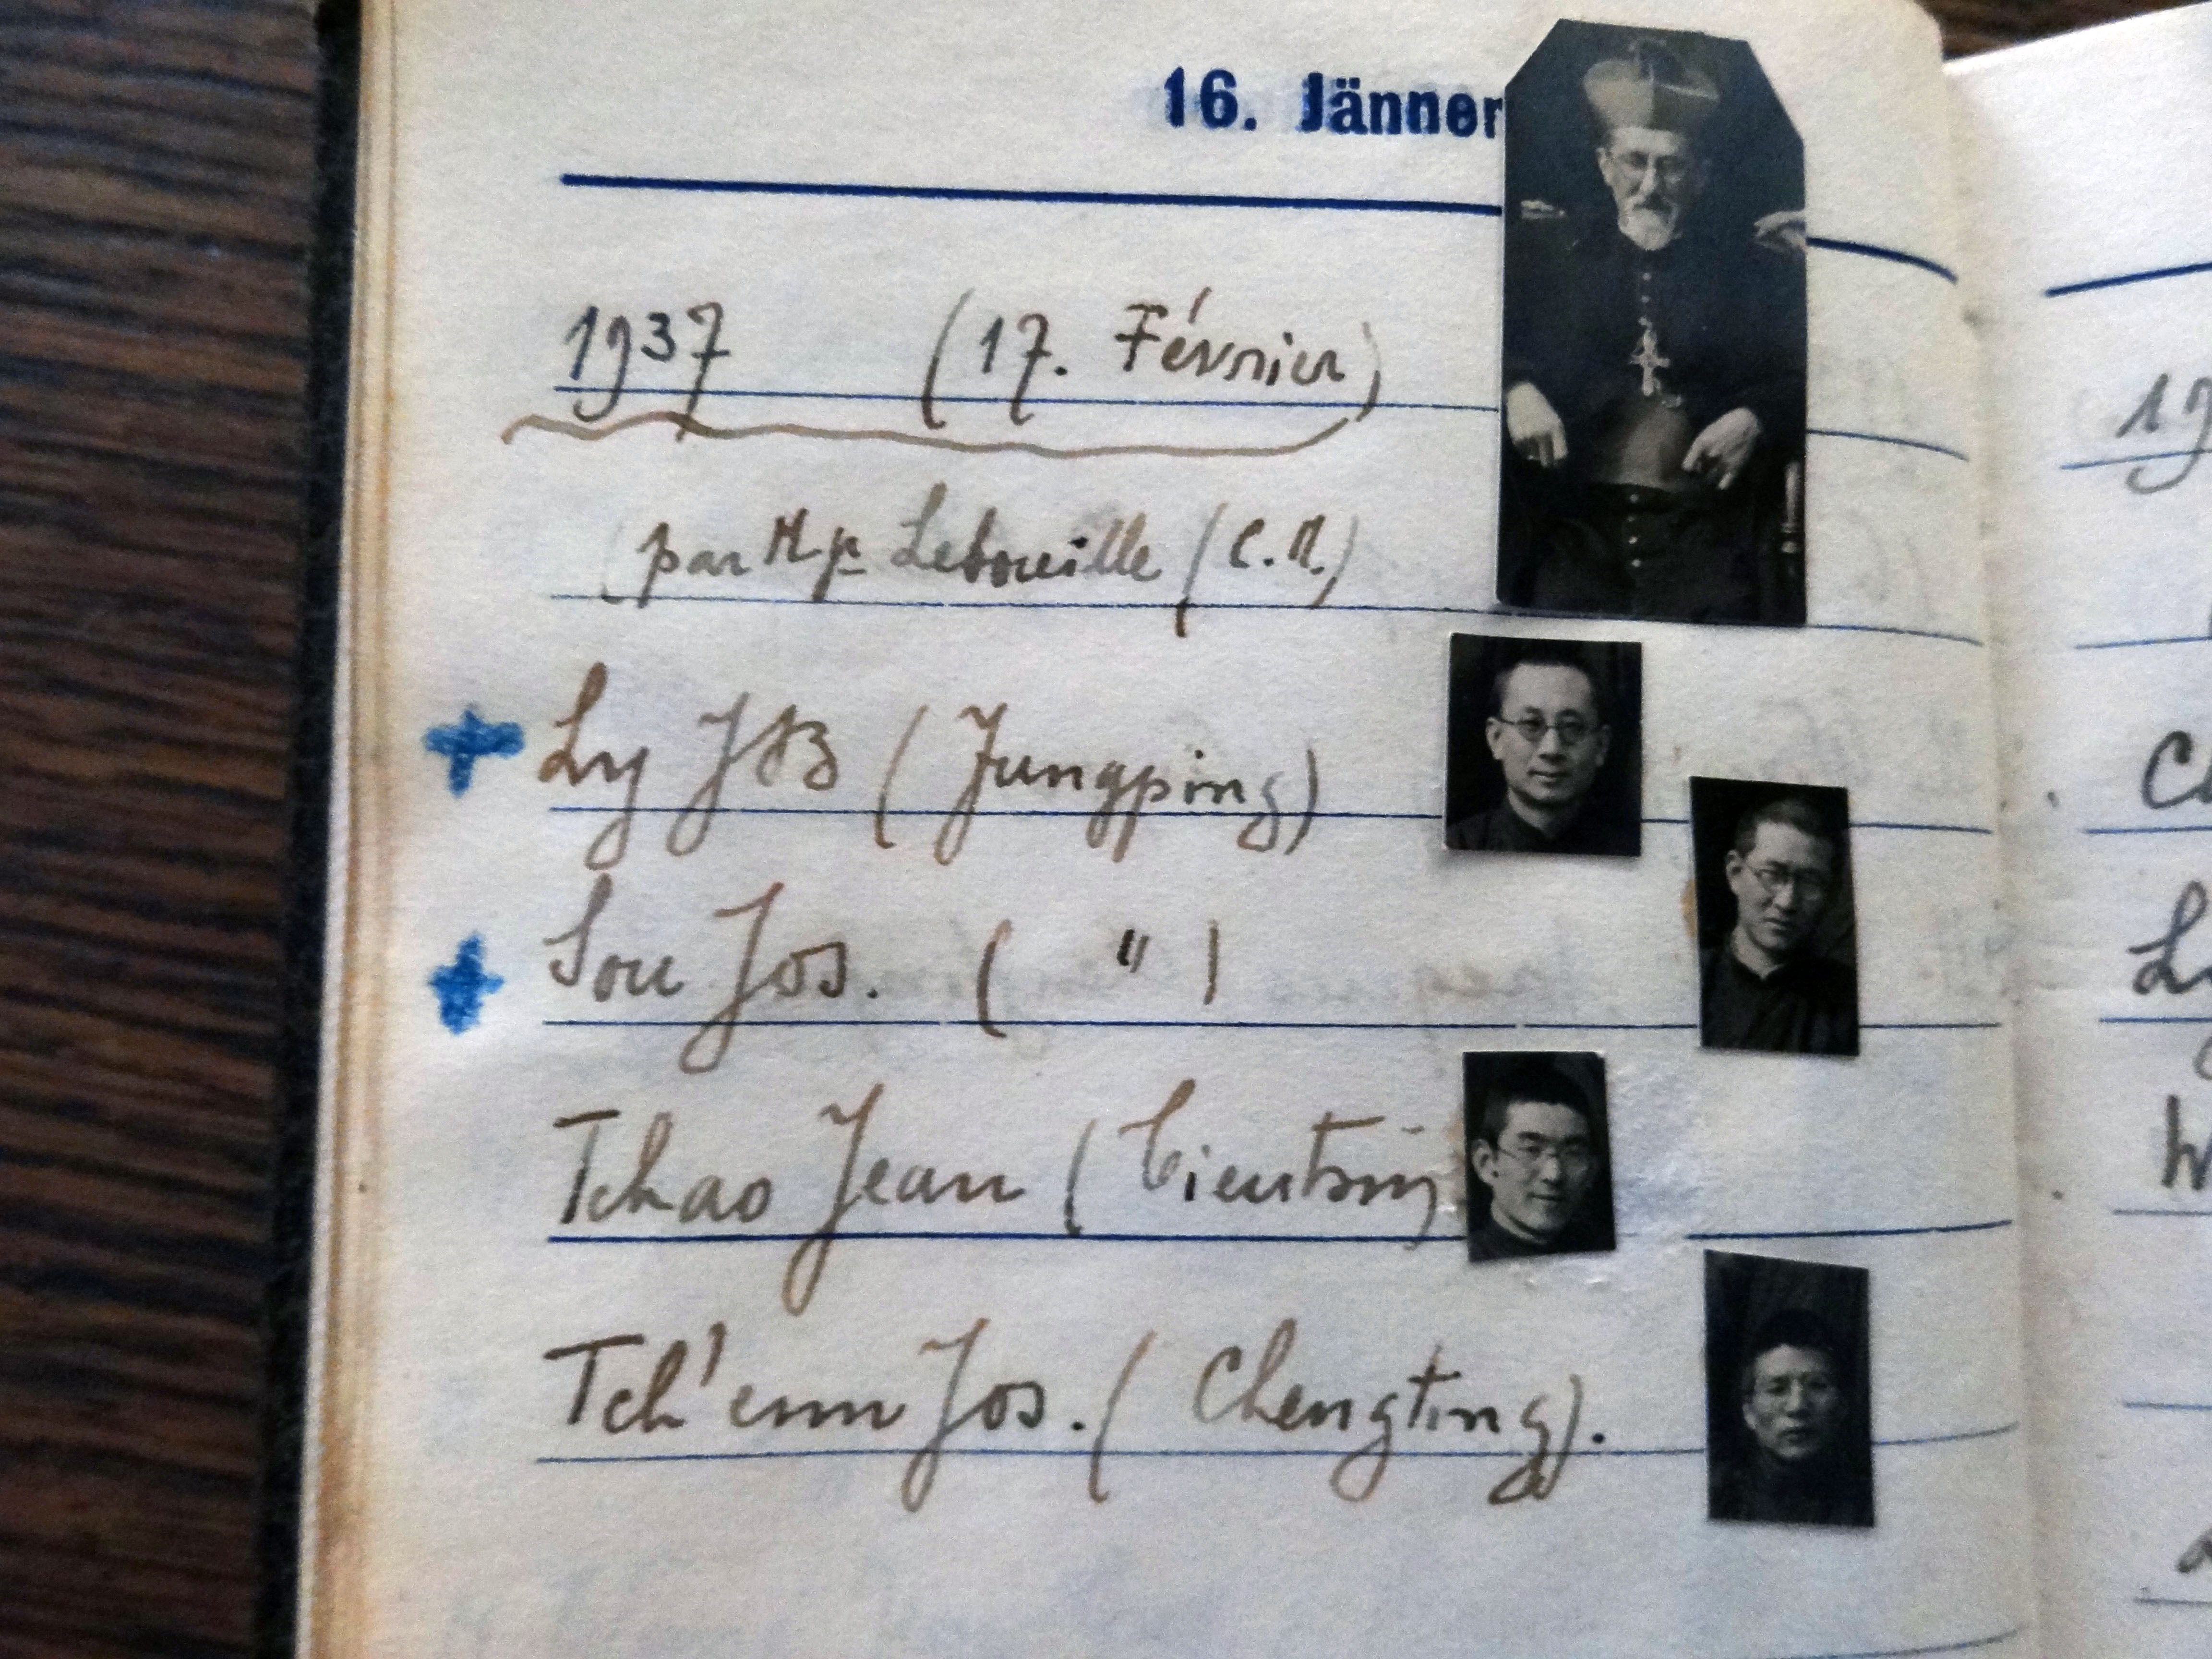 16. Jänner
1937 (17. Février)
(par Mgr Lebouille (C.M.)
Ly JB (Jungping)
Sou Jos. ( " )
Tchao Jean (Tientsin)
Tch'enn Jos. (Chengting).